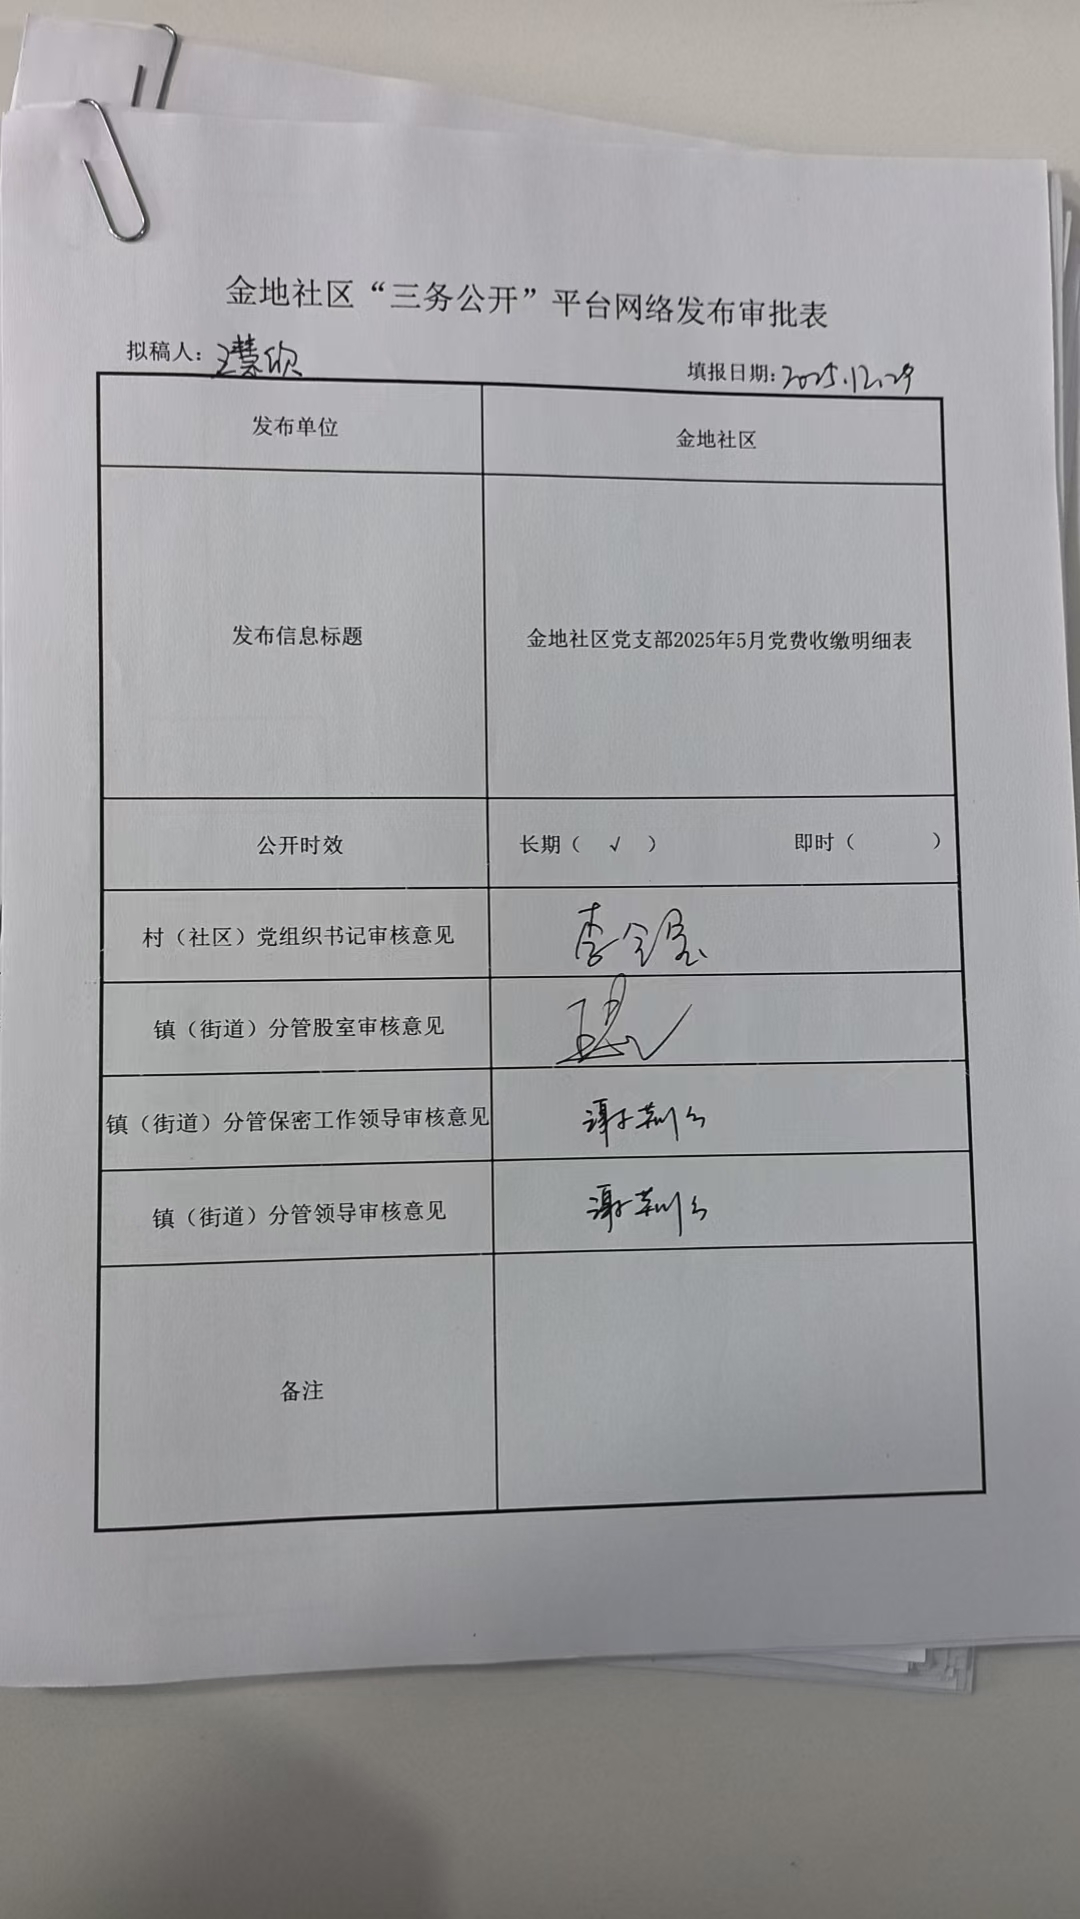 金地社区“三务公开”平台网络发布审批表
拟稿人：王慧欣
填报日期：2025.12.29
发布单位 金地社区
发布信息标题 金地社区党支部2025年5月党费收缴明细表
公开时效 长期（ √ ） 即时（ ）
村（社区）党组织书记审核意见 李
镇（街道）分管股室审核意见
镇（街道）分管保密工作领导审核意见 谢
镇（街道）分管领导审核意见 谢
备注